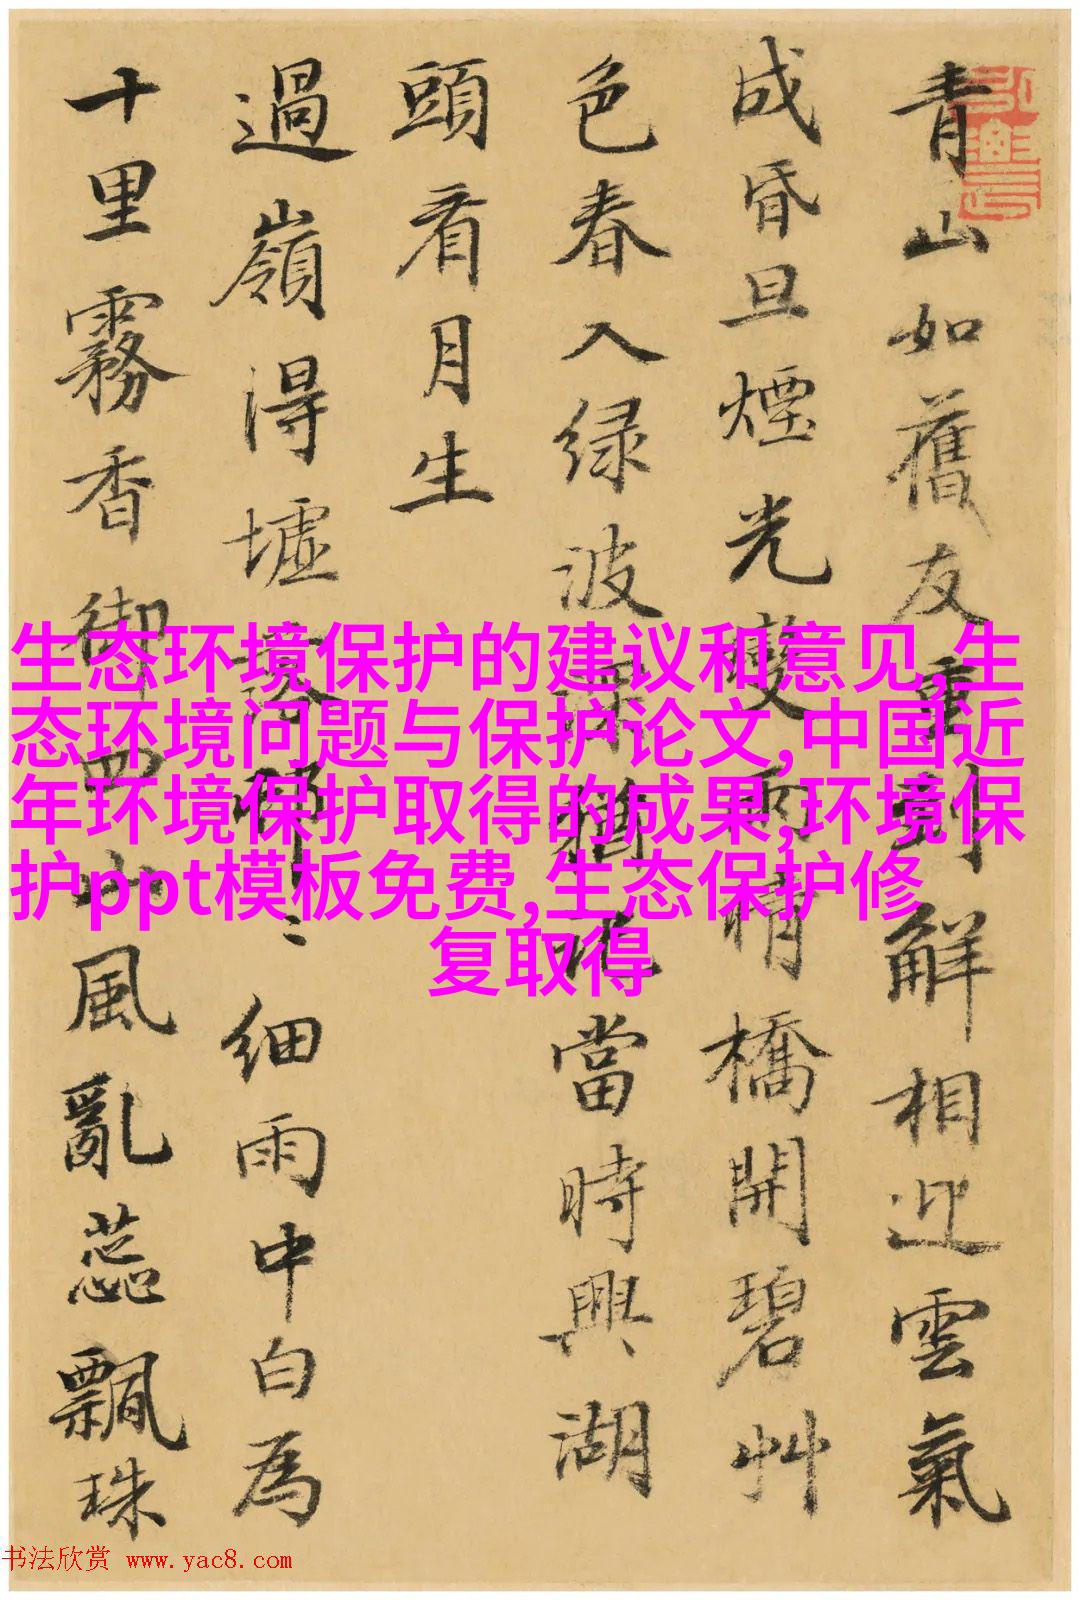 青山如舊友重到解相迎雲氣
成昏旦煙光變雨晴橋開碧艸
色春入绿波深猶此當時興湖
頭看月生
過嶺得墟落聊〻細雨中白為
十里霧香御四山風亂蕊飄珠
生态环境保护的建议和意见,生
态环境问题与保护论文,中国近
年环境保护取得的成果,环境保
护ppt模板免费,生态保护修
复取得
书法欣赏 www.yac8.com